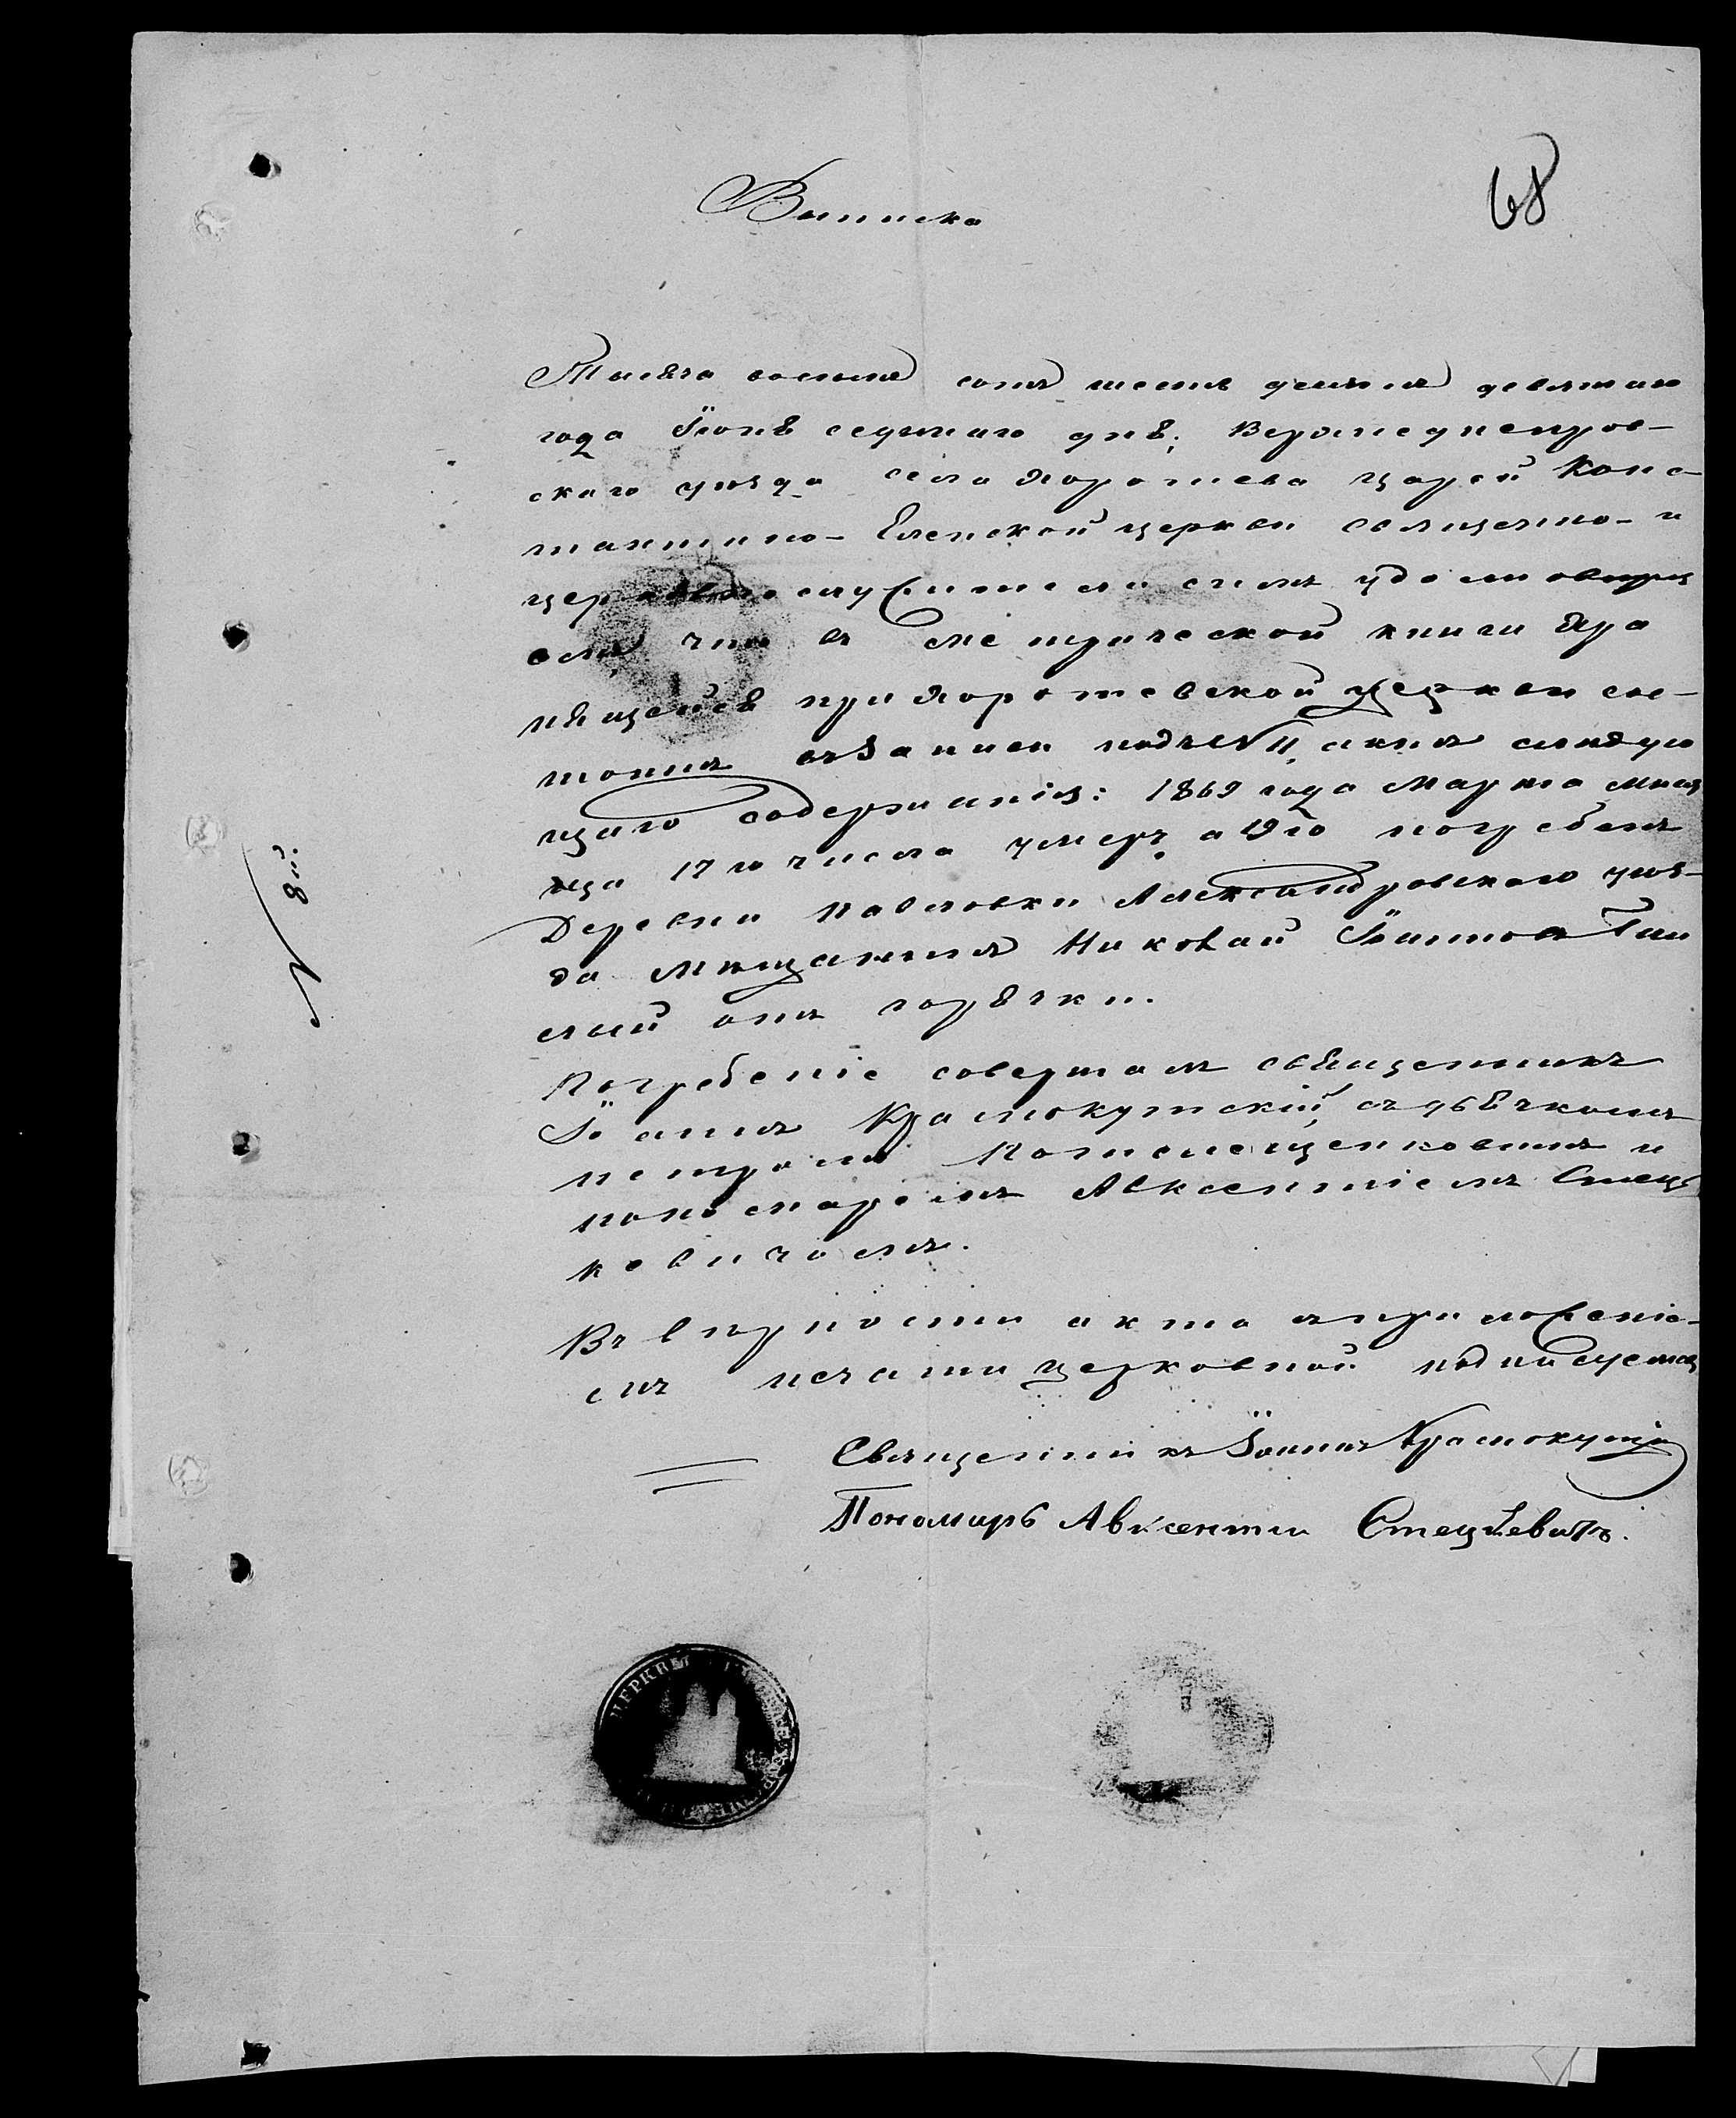 68
Выписка
Тысяча восемъ сотъ шесть десятъ девятаго
года Іюнѣ седьмаго днѣ; Верхнеднепров-
скаго уѣзда села Хорошева Царей Конс-
тантино-Еленской церкви священно- и
церковно служители симъ удостовѣря
емъ что въ метрической книги Хра
нящейсѣ при Хорошевской церкви сос-
тоитъ въ записи подъ N 11, актъ следую
щаго содержанія: 1869 года Марта меся
ца 17 го числа умеръ а 19го погребенъ
Деревни Павловки Александровского уез-
да Мещанинъ Николай Іоанновъ
отъ горѣчки.
Погребеніе совершалъ свѣщенникъ
Іоаннъ Краснокутскій, съ дьѣчкомъ
Петромъ и
пономаремъ Авксентіемъ Стец
кевичомъ.
Въ верности акта съ приложеніе-
мъ печати церковной подписуемся
Священникъ Іоаннъ Краснокутскій
Пономарь Авксентій Стецкевичъ.
N 8й.
ЦЕРКВЫ